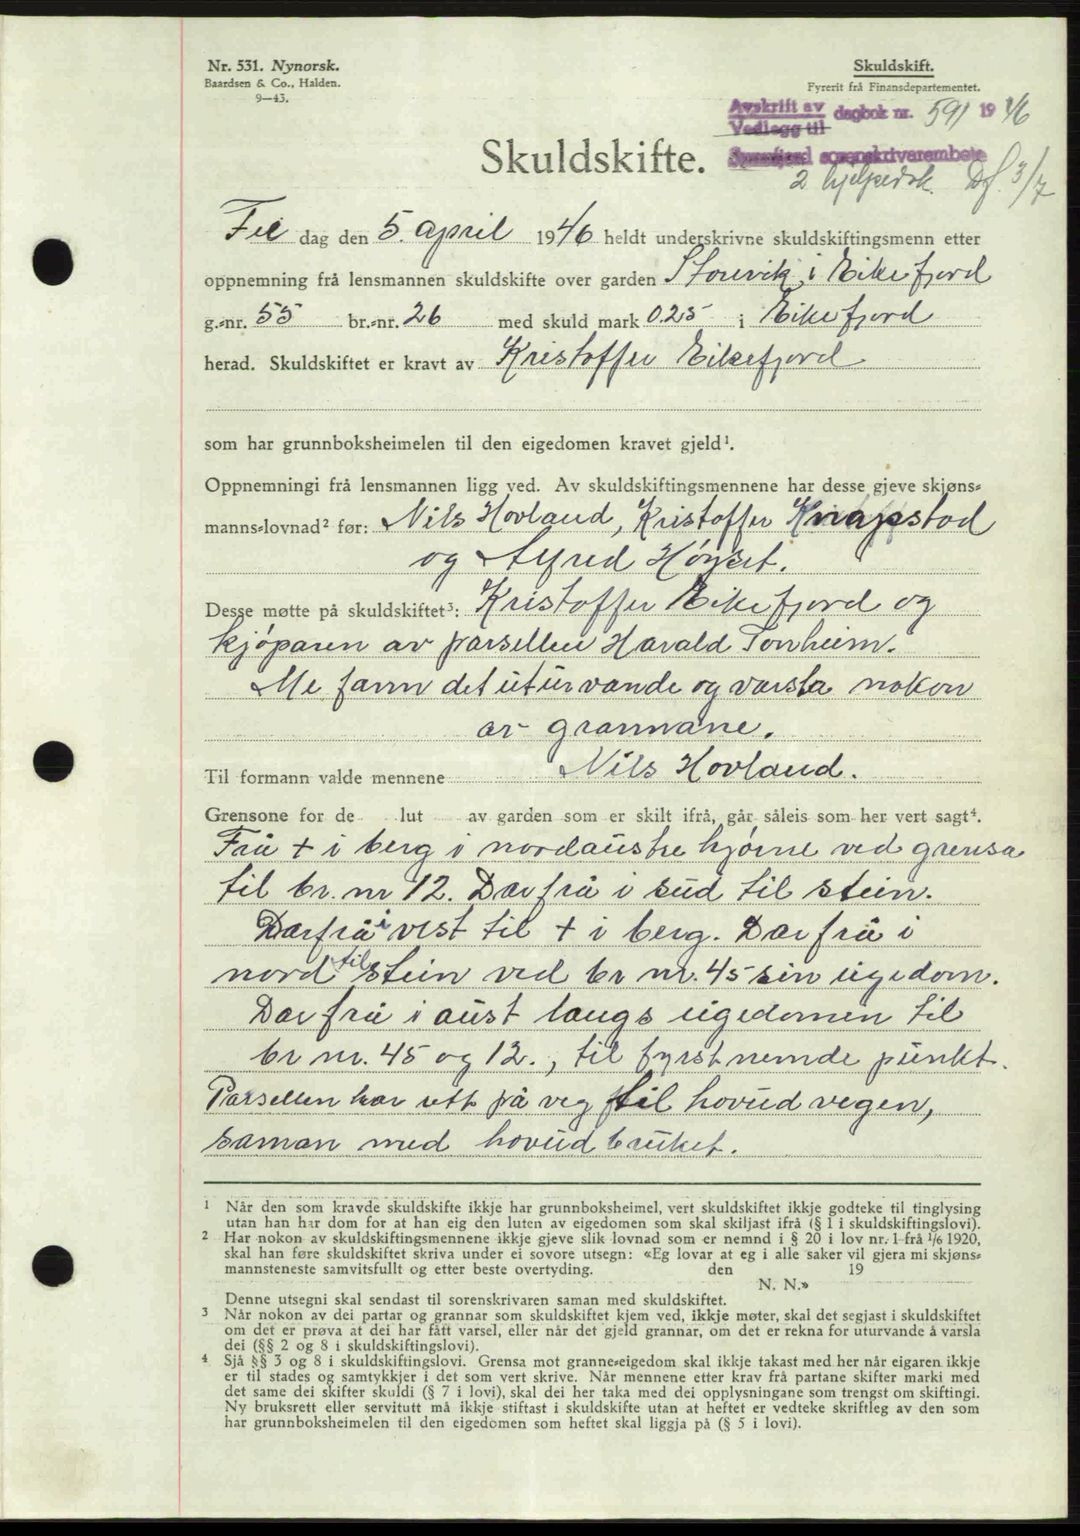 Nr. 531. Nynorsk.
Baardsen & Co., Halden.
9—43.
Skuldskift.
Fyrerit frå Finansdepartementet.
Avskrift av
Vedlegg til
dagbok nr. 591 1946
sorenskrivarembete
2 hjelpedok. Df. 3/7
Skuldskifte.
Fre dag den 5. april 1946 heldt underskrivne skuldskiftingsmenn etter
oppnemning frå lensmannen skuldskifte over garden Storevik i Eikefjord
g.-nr. 55 br.-nr. 26 med skuld mark 0.25 i Eikefjord
herad. Skuldskiftet er kravt av Kristoffer Eikefjord
som har grunnboksheimelen til den eigedomen kravet gjeld¹.
Oppnemningi frå lensmannen ligg ved. Av skuldskiftingsmennene har desse gjeve skjøns-
manns-lovnad² før: Nils Hovland, Kristoffer Knapstad
og Alfred Høyset.
Desse møtte på skuldskiftet³: Kristoffer Eikefjord og
kjøparen av parsellen Harald Tonheim.
Me fann det uturvande og varsla nokon
av grannane.
Til formann valde mennene Nils Hovland.
Grensone for de lut av garden som er skilt ifrå, går såleis som her vert sagt⁴.
Frå + i berg i nordaustre hjørne ved grensa
til br. nr 12. Dærfrå i sud til stein.
Dærfrå i vest til + i berg. Dærfrå i
nord til stein ved br nr. 45 sin eigedom.
Dærfrå i aust langs eigedomen til
br nr. 45 og 12., til fyrstnemde punkt.
Parsellen har rett på veg til hovudvegen,
saman med hovudbruket.
¹ Når den som kravde skuldskifte ikkje har grunnboksheimel, vert skuldskiftet ikkje godteke til tinglysing
utan han har dom for at han eig den luten av eigedomen som skal skiljast ifrå (§ 1 i skuldskiftingslovi).
² Har nokon av skuldskiftingsmennene ikkje gjeve slik lovnad som er nemnd i § 20 i lov nr. 1 frå 1/6 1920,
skal han føre skuldskiftet skriva under ei sovore utsegn: «Eg lovar at eg i alle saker vil gjera mi skjøns-
mannsteneste samvitsfullt og etter beste overtyding. den 19
N. N.»
Denne utsegni skal sendast til sorenskrivaren saman med skuldskiftet.
³ Når nokon av dei partar og grannar som skuldskiftet kjem ved, ikkje møter, skal det segjast i skuldskiftet
om det er prøva at dei har fått varsel, eller når det gjeld grannar, om det er rekna for uturvande å varsla
dei (§§ 2 og 8 i skuldskiftingslovi).
⁴ Sjå §§ 3 og 8 i skuldskiftingslovi. Grensa mot granne-eigedom skal ikkje takast med her når eigaren ikkje
er til stades og samtykkjer i det som vert skrive. Når mennene etter krav frå partane skifter marki med
det same dei skifter skuldi (§ 7 i lovi), skal dei her taka med dei opplysningane som trengst om skiftingi.
Ny bruksrett eller servitutt må ikkje stiftast i skuldskifte utan at heftet er vedteke skriftleg av den som
har grunnboksheimelen til den eigedomen som heftet skal liggja på (§ 5 i lovi).